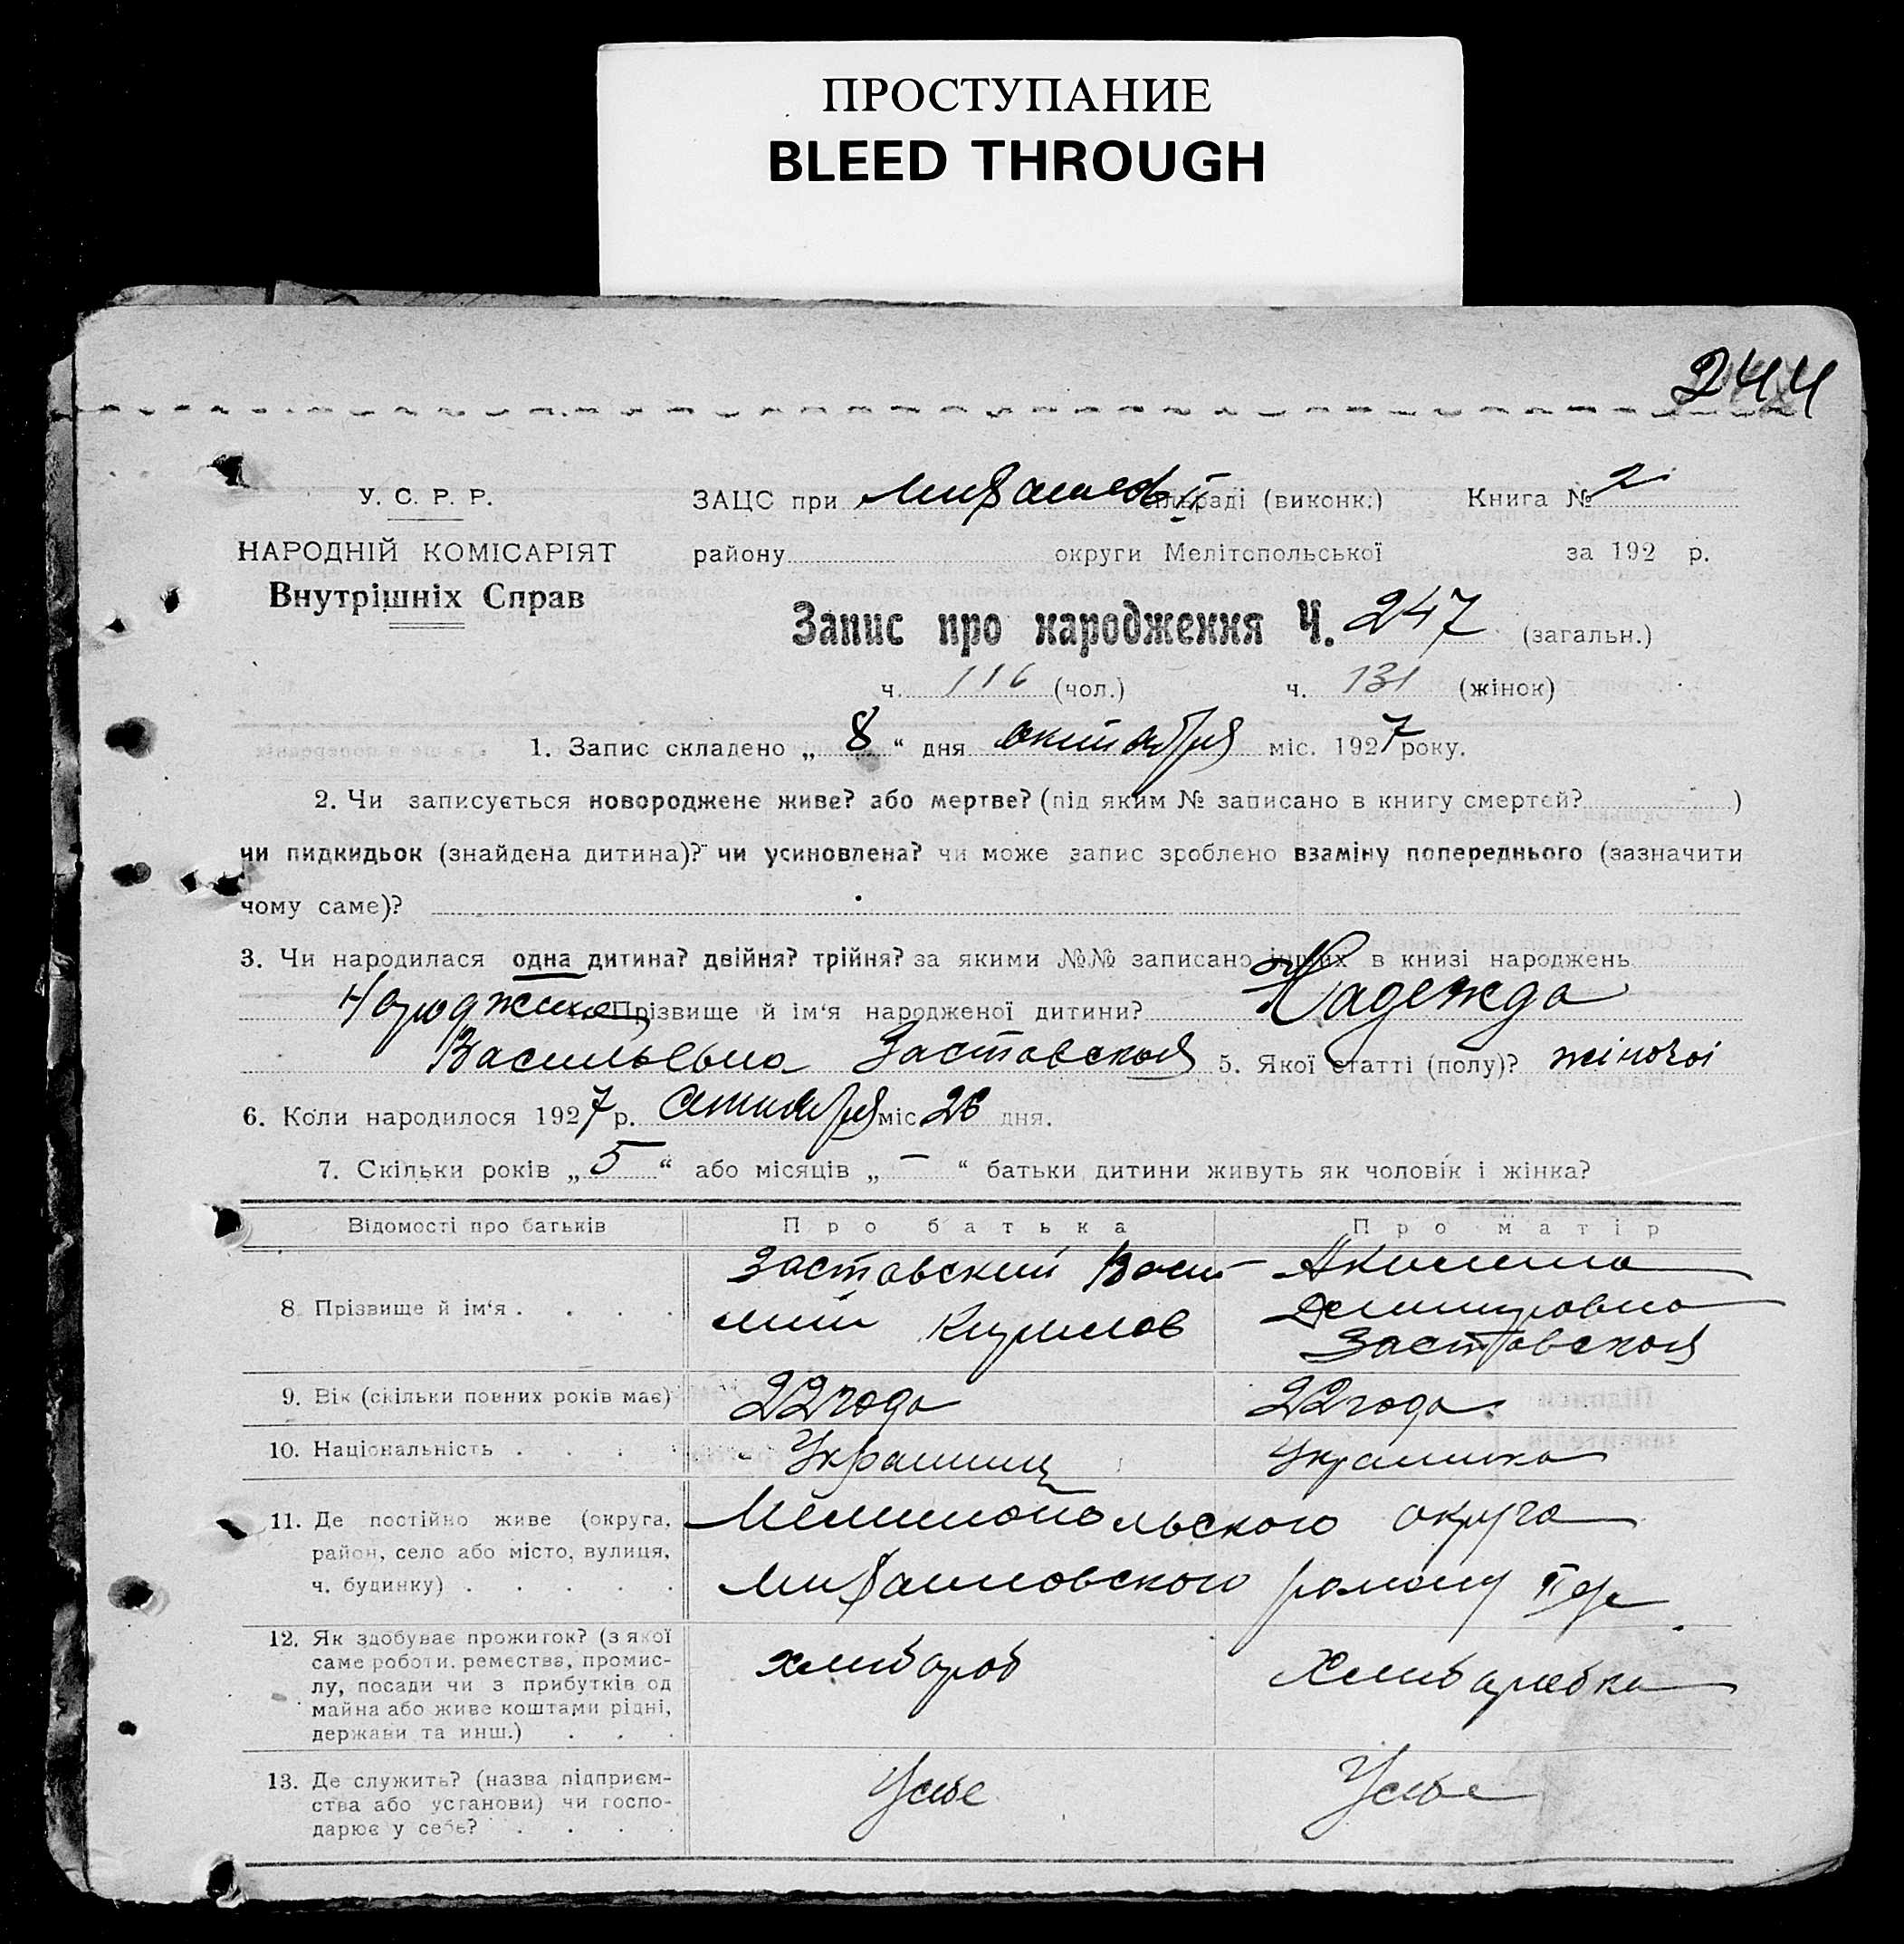 ПРОСТУПАНИЕ
BLEED THROUGH
244
У. С. Р. Р.
НАРОДНІЙ КОМІСАРІЯТ
Внутрішніх Справ
ЗАЦС при сільраді (виконк.) Книга № 2
району округи Мелітопольської за 192 р.
Запис про народження Ч. 247 (загальн.)
ч. 116 (чол.) ч. 131 (жінок)
1. Запис складено „ 8 “ дня октября міс. 1927 року.
2. Чи записується новороджене живе? або мертве? (під яким № записано в книгу смертей? )
чи пидкидьок (знайдена дитина)? чи усиновлена? чи може запис зроблено взаміну попереднього (зазначити
чому саме)?
3. Чи народилася одна дитина? двійня? трійня? за якими №№ записано інших в книзі народжень
Прізвище й ім‘я народженої дитини? Надежда
Васильевна Заставская 5. Якої статті (полу)? жіночоі
6. Коли народилося 1927 р. міс 26 дня.
7. Скільки років „ 5 “ або місяців „ — “ батьки дитини живуть як чоловік і жінка?
Відомості про батьків Про батька Про матір
8 Прізвище й ім‘я . . . .
Заставский Васи-
лий Кирилов
Акилина
Демитровна
Заставская
9. Вік (скільки повних років має) 22 года 22 года
10. Національність . . . . Украинец Украинка
11. Де постійно живе (округа, район, село або місто, вулиця, ч. будинку) . . . . .
Мелитопольского округа
району II
12. Як здобуває прожиток? (з якої
саме роботи, ремества, промис-
лу, посади чи з прибутків од
майна або живе коштами рідні,
держави та инш.) . . .
хлибароб Хлибаробка
13. Де служить? (назва підприєм-
ства або установи) чи госпо-
дарює у себе? . . . .
Усибе Усибе